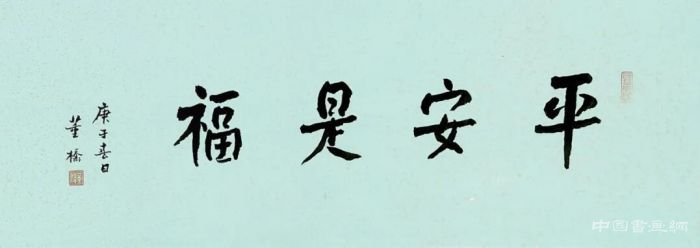 平安是福
庚子春日
董橋
中国書画網